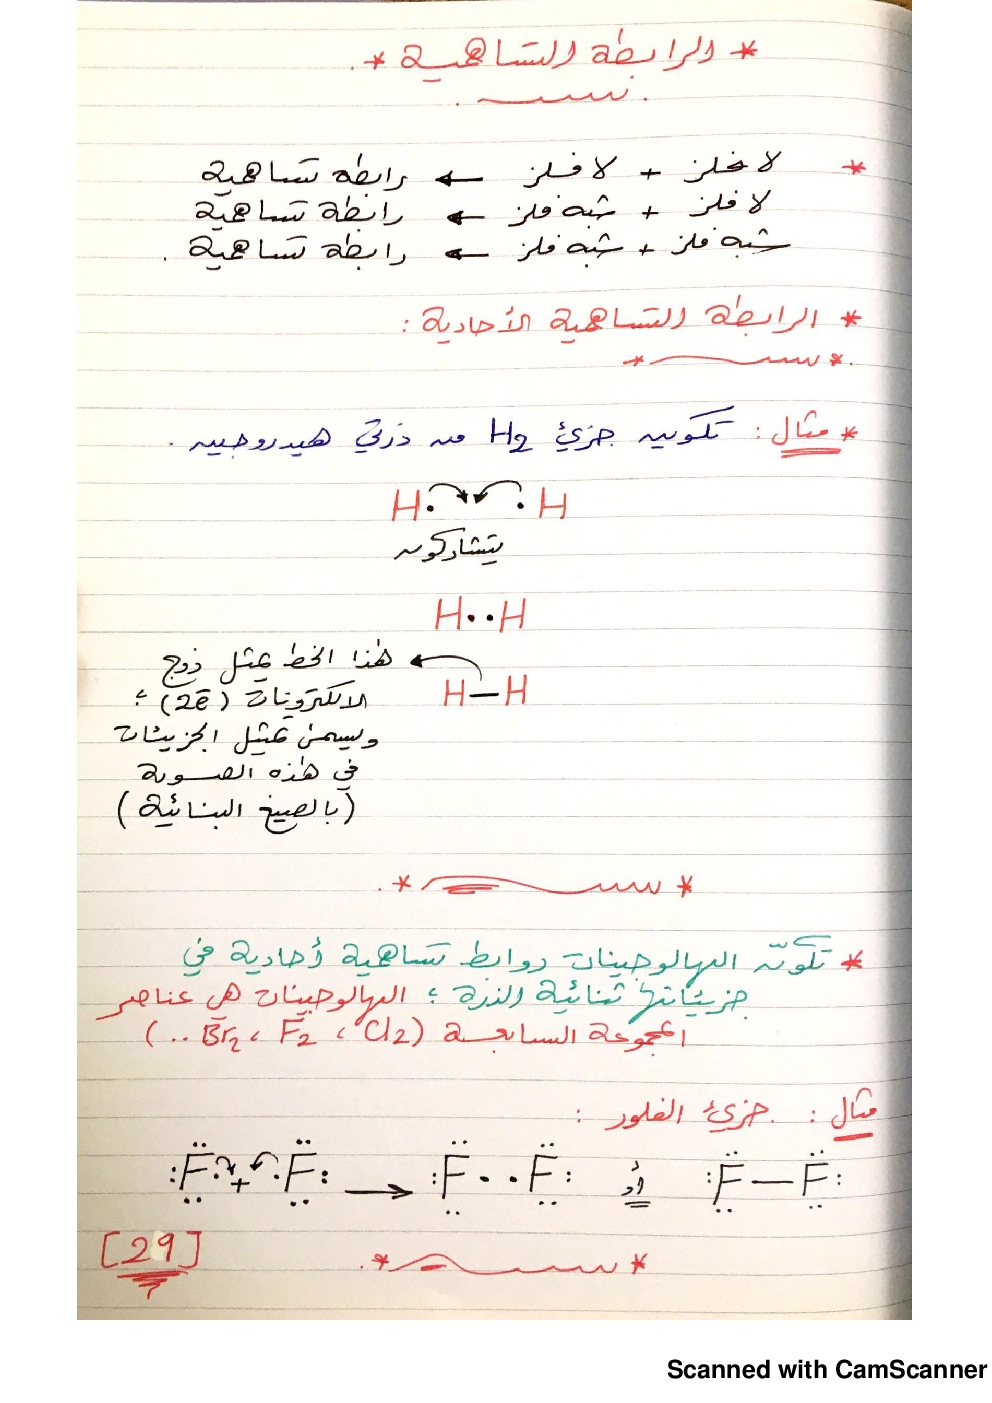 * الرابطة التساهمية *
* لا فلز + لا فلز ← رابطة تساهمية
لا فلز + شبه فلز ← رابطة تساهمية
شبه فلز + شبه فلز ← رابطة تساهمية .
* الرابطة التساهمية الأحادية :
* مثال : تكوين جزيء H2 من ذرتي هيدروجين .
H. .H
يتشاركون
H..H
H—H
هذا الخط يمثل زوج
الالكترونات (2e̅) ؛
ويسمى تمثيل الجزيئات
في هذه الصورة
(بالصيغ البنائية)
* تكوّن الهالوجينات روابط تساهمية أحادية في
جزيئاتها ثنائية الذرة ؛ الهالوجينات هي عناصر
المجموعة السابعة (Cl2 ، F2 ، Br2 ..)
مثال : جزيء الفلور :
:F. + .F: → :F..F: أو :F—F:
[29]
Scanned with CamScanner